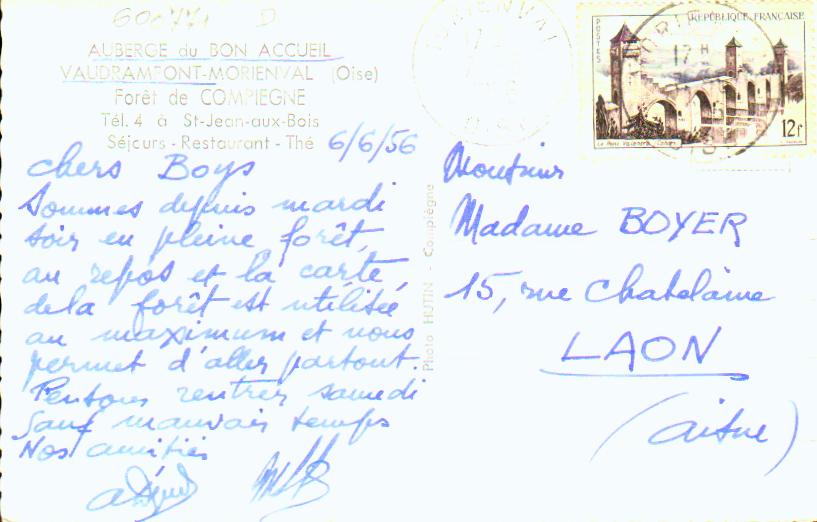 600771 D
AUBERGE du BON ACCUEIL
VAUDRAMPONT-MORIENVAL (Oise)
Forêt de COMPIEGNE
Tél. 4 à St-Jean-aux-Bois
Séjours - Restaurant - Thé
6/6/56
chers Boys
Sommes depuis mardi
soir en pleine forêt,
au repos et la carte
de la forêt est utilisée
au maximum et nous
permet d'aller partout.
Pensons rentrer samedi
sauf mauvais temps
Nos amitiés
Photo HUTIN - Compiègne
MORIENVAL
OISE
17 H
POSTES
REPUBLIQUE FRANÇAISE
Le Pont Valentré Cahors
12f
Monsieur
Madame BOYER
15, rue Chatelaine
LAON
(Aisne)